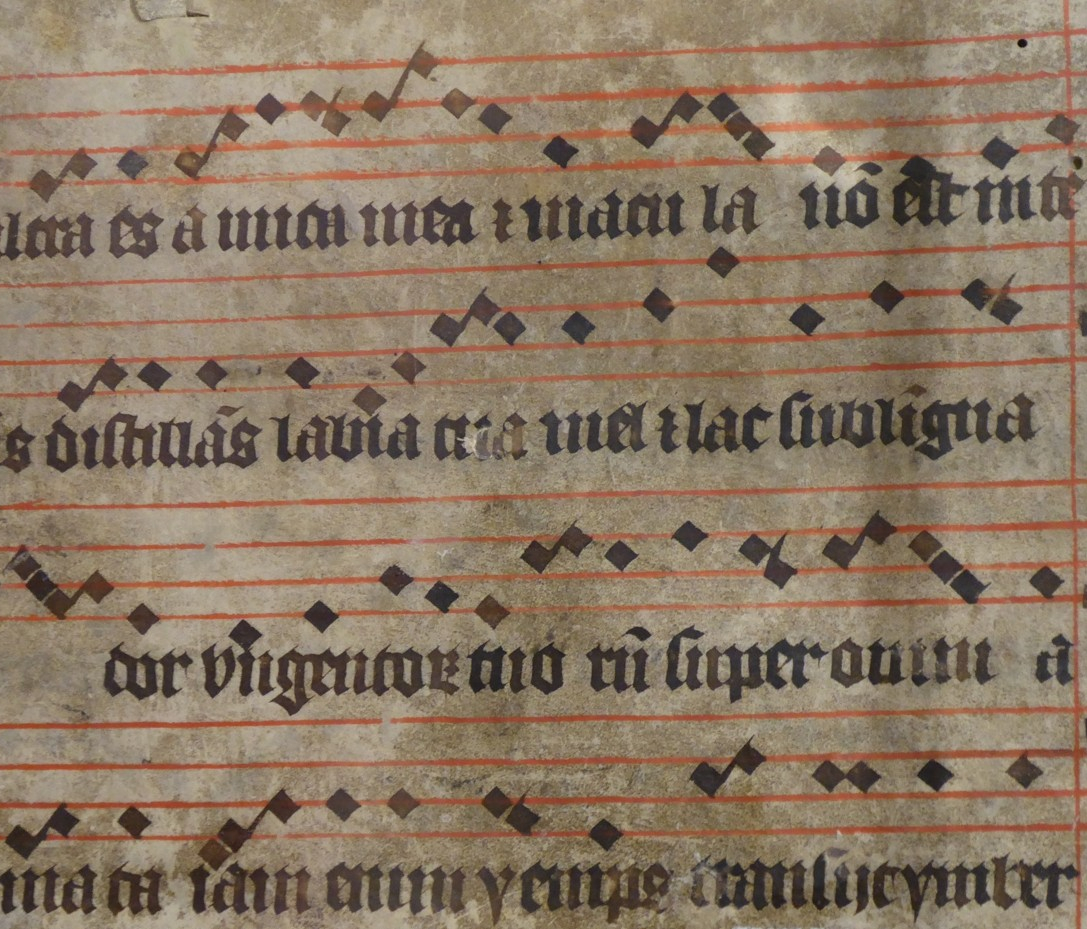 lcra es amica mea ⁊ macula nō est in te
s distillās labia tua mel ⁊ lac sub ligua
dor vngentoꝝ tuoꝝ sup omnia
mata iam enim yemps transijt ymber